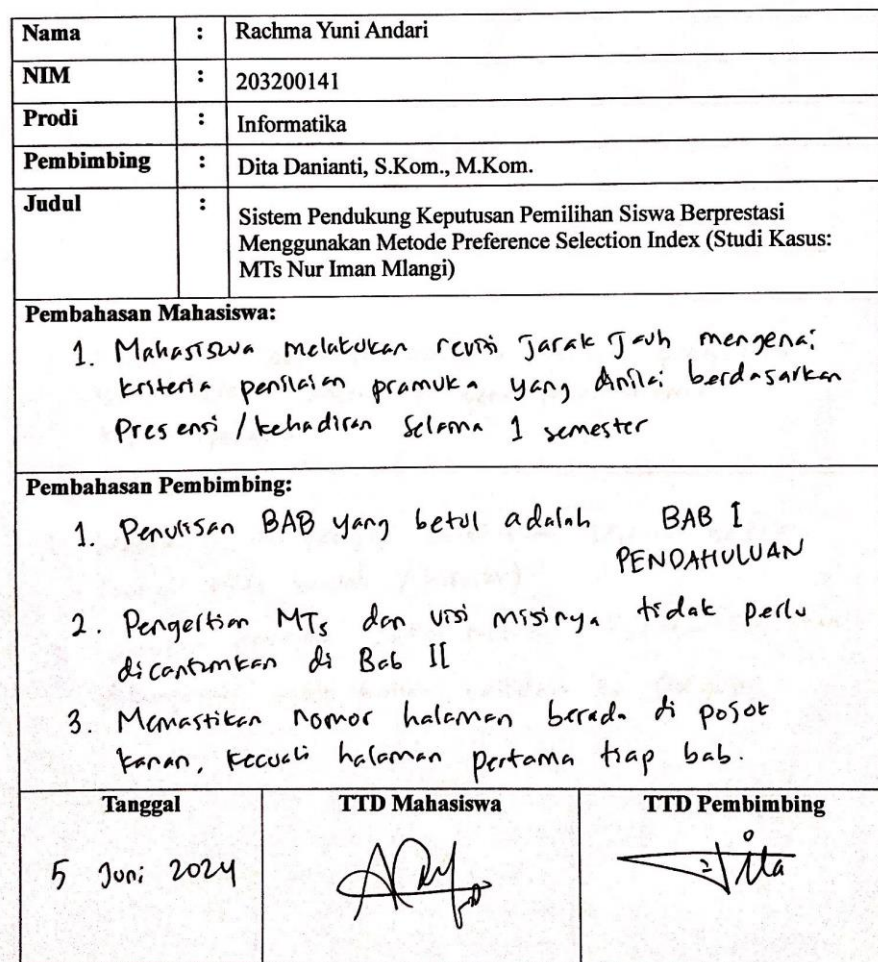 Nama : Rachma Yuni Andari
NIM : 203200141
Prodi : Informatika
Pembimbing : Dita Danianti, S.Kom., M.Kom.
Judul : Sistem Pendukung Keputusan Pemilihan Siswa Berprestasi
Menggunakan Metode Preference Selection Index (Studi Kasus:
MTs Nur Iman Mlangi)
Pembahasan Mahasiswa:
1. Mahasiswa melakukan revisi Jarak Jauh mengenai
kriteria penilaian pramuka yang dinilai berdasarkan
Presensi / kehadiran Selama 1 semester
Pembahasan Pembimbing:
1. Penulisan BAB yang betul adalah BAB I
PENDAHULUAN
2. Pengertian MTs dan visi misinya tidak perlu
dicantumkan di Bab II
3. Memastikan nomor halaman berada di pojok
kanan, kecuali halaman pertama tiap bab.
Tanggal TTD Mahasiswa TTD Pembimbing
5 Juni 2024